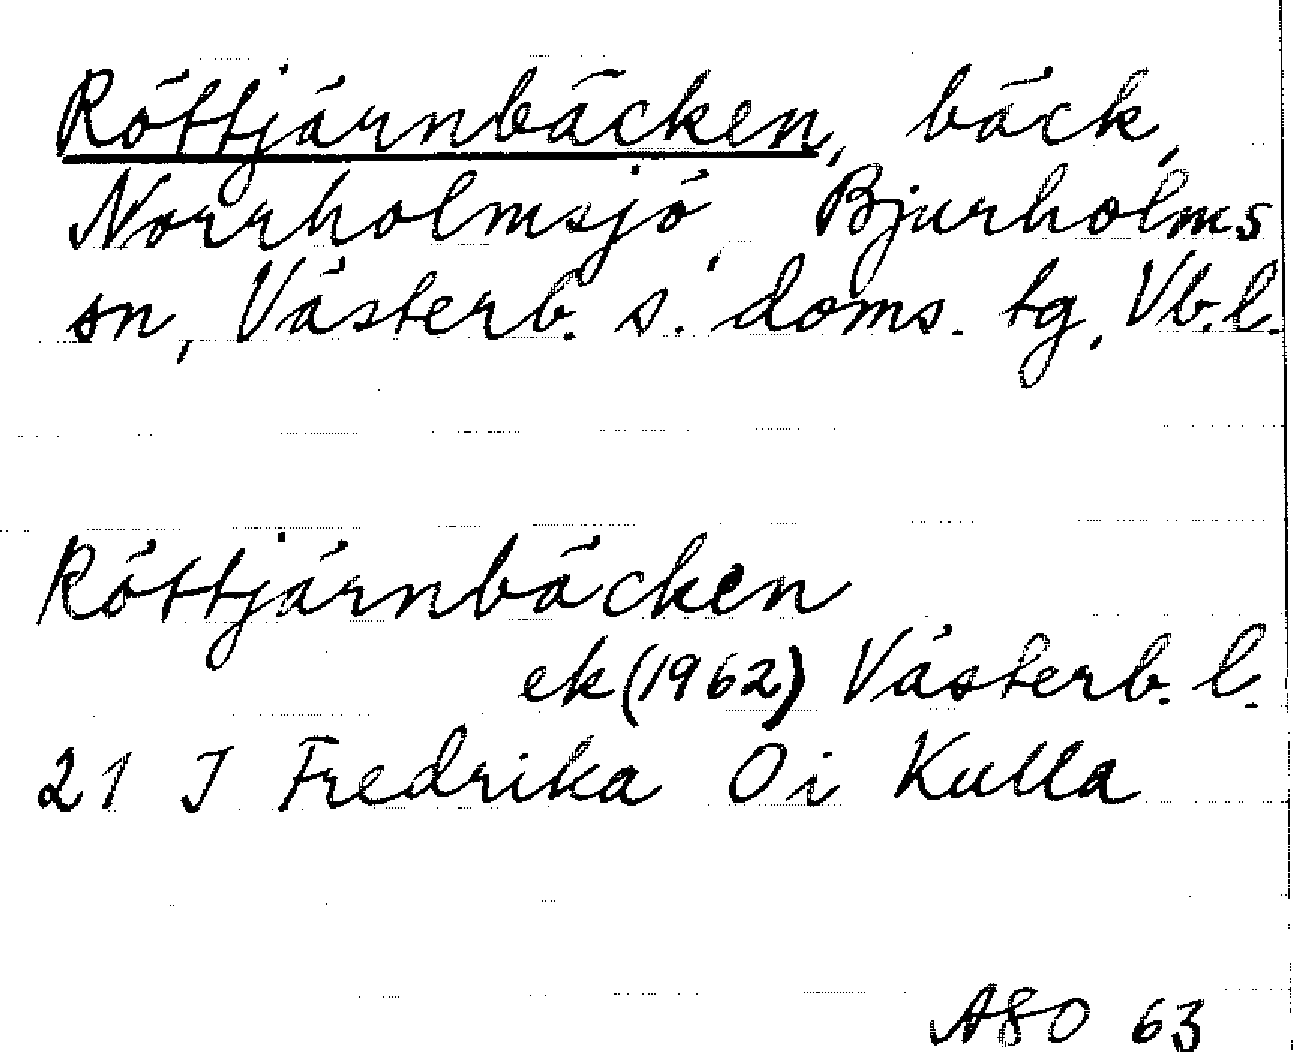 Röttjärnbäcken, bäck,
Norrholmsjö, Bjurholms
sn, Västerb. s. doms. tg, Vb. l.
Röttjärnbäcken
ek (1962) Västerb. l.
21 J Fredrika Oi Kulla
ASO 63